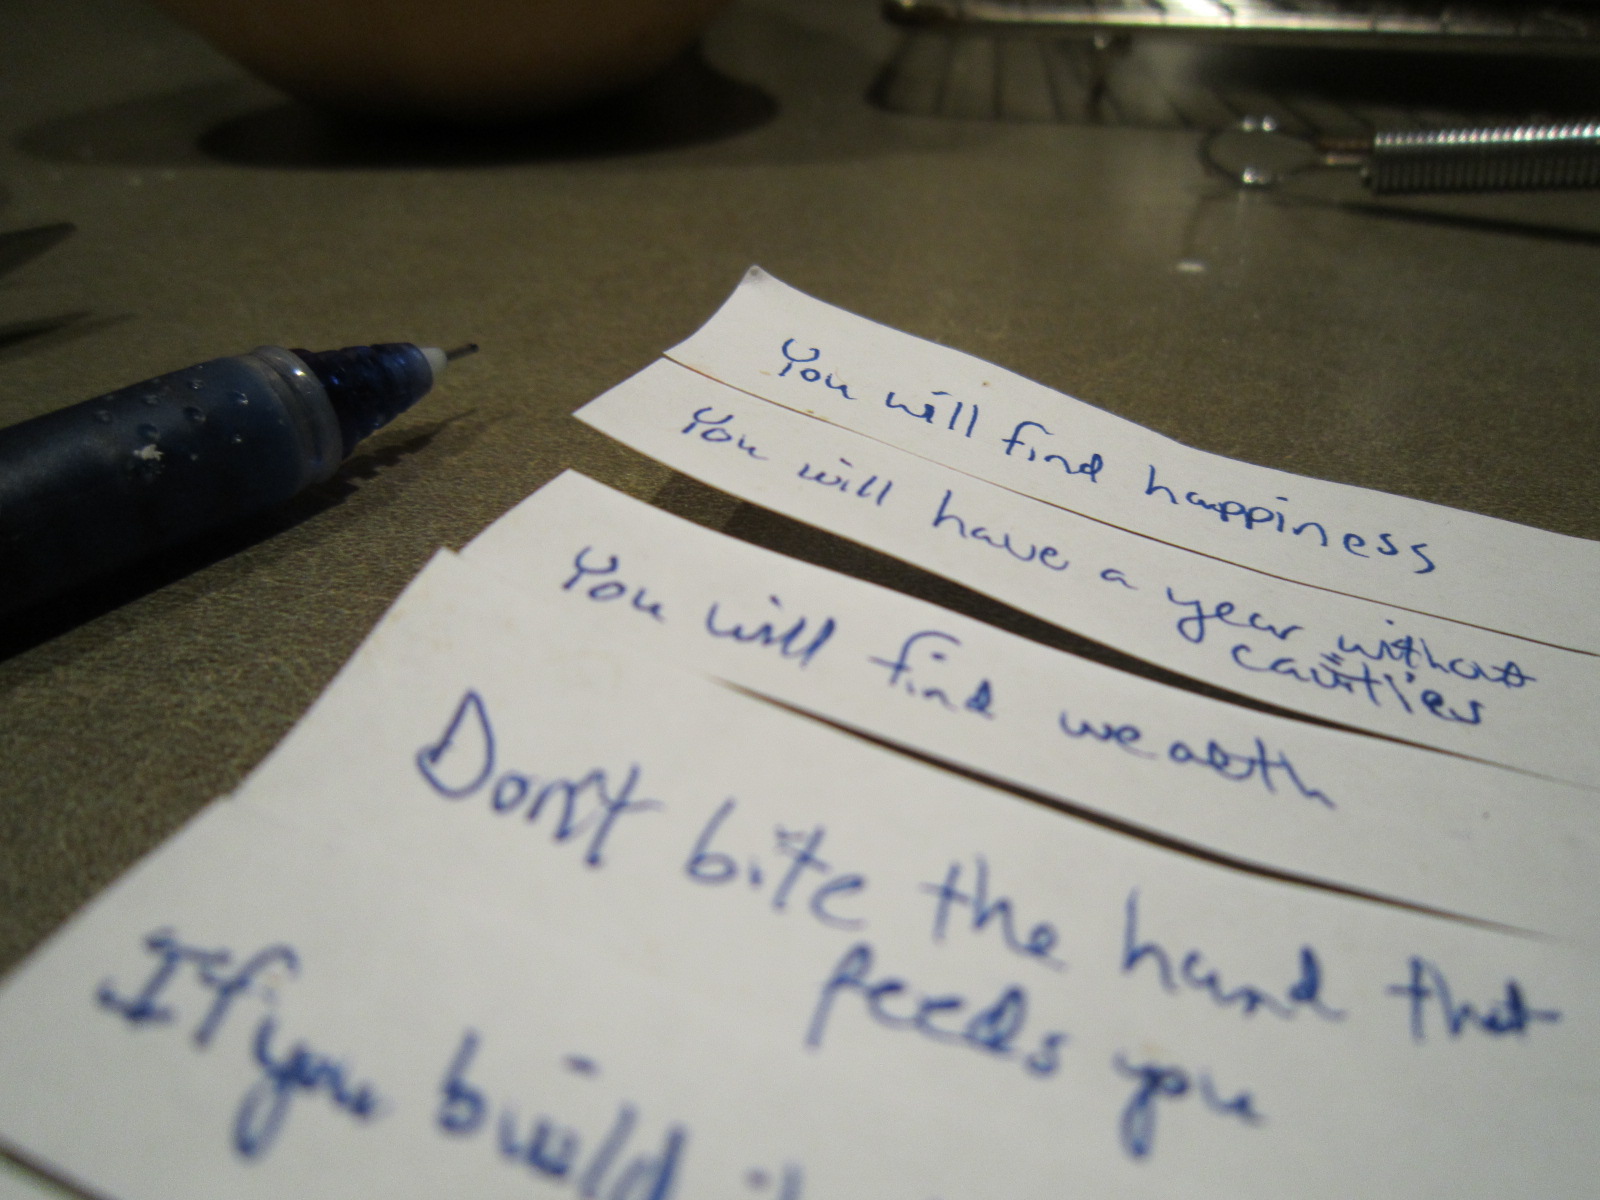 You will find happiness
You will have a year without
cavities
You will find wealth
Don't bite the hand that
feeds you
If you build it